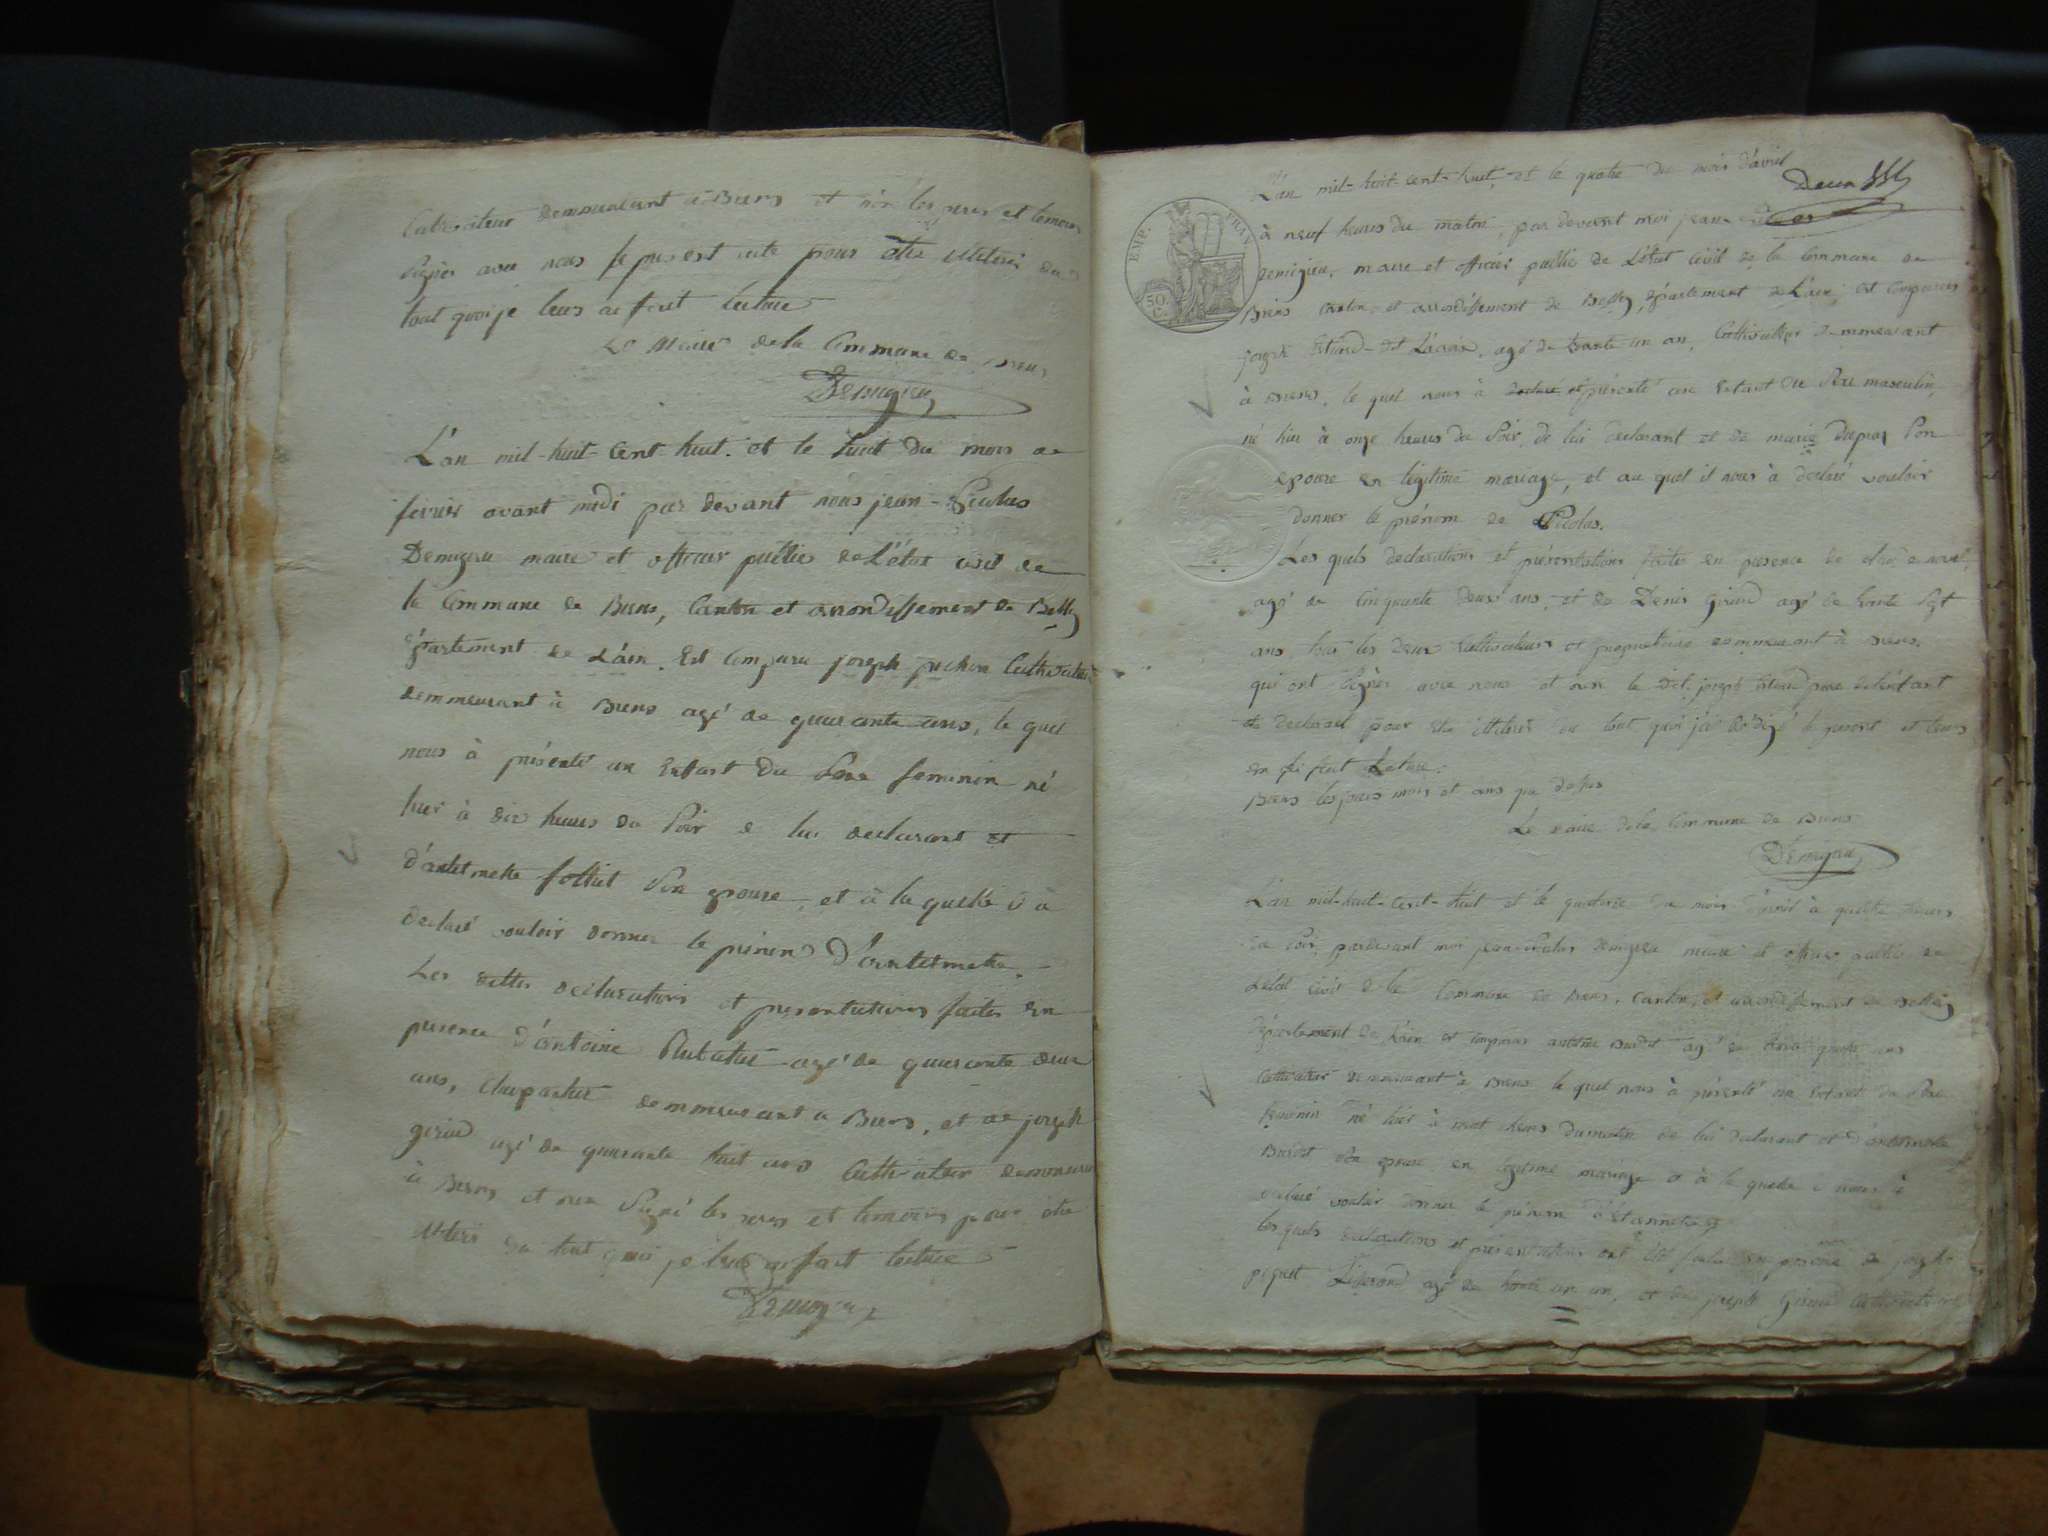 Cultivateur demmeurant à Brens et non les pères et temoins
Signés avec nous le present acte pour être utilisé du
tout quoi je leurs ai fait lecture
Le Maire de la Commune de Brens
Demigieu
L'an mil-huit-cent huit. et le huit du mois de
fevrier avant midi par devant nous jean-Nicolas
Demigieu maire et officier public de L'état civil de
la Commune de Brens, Canton et arrondissement de Belley
département de L'ain. Est Comparu joseph pichon Cultivateur
demmeurant à Brens agé de quarante ans, le quel
nous à présenté un Enfant du Sexe feminin né
hier à dix heures du Soir de lui declarant et
d'antelmette Son epouse, et à la quelle il à
declaré vouloir donner le prénom D'antelmette.
Les dittes déclarations et presentations faites en
presence d'antoine agé de quarante deux
ans, Charpantier demmeurant à Brens, et de joseph
giriud agé de quarante huit ans Cultivateur demmeurant
à Brens et non Signé les pères et temoins pour être
utilisé du tout quoi je leurs ai fait lecture
Demigieu
EMP. FRAN.
50.
C.
L'an mil-huit-cent-huit, et le quatre du mois d'avril
à neuf heures du matin, par devant moi jean
Demigieu, maire et officier public de L'état Civil de la Commune de
Brens Canton et arrondissement de Belley, département de L'ain; est Comparu
joseph dit agé de trante un an, Cultivateur demmeurant
à Brens, le quel nous à declaré et présenté un Enfant du Sexe masculin,
né hier à onze heures du Soir, de lui declarant et de marie Son
epouse en légitime mariage, et au quel il nous à declaré vouloir
donner le prénom de Nicolas.
Les quels declarations et présentations faites en presence de
agé de Cinquante deux ans, et de Denis giriud agé de trante Sept
ans, tous les deux Cultivateurs et propriétaires demmeurant à Brens.
qui ont Signés avec nous et non le dit joseph père de l'enfant
et declarant pour être utilisé du tout quoi j'ai rédigé le present et leurs
en fai fait Lecture.
Brens les jours mois et ans que dessus
Le maire de la Commune de Brens
Demigieu
L'an mil-huit-cent-huit et le quatorze du mois d'avril à quatre heures
du Soir, pardevant moi jean-Nicolas Demigieu maire et officier public de
L'état Civil de la Commune de Brens, Canton et arrondissement de Belley
département de L'ain est Comparu antoine Burdet agé de trante quatre ans
Cultivateur demmeurant à Brens le quel nous à présenté un Enfant du Sexe
feminin né hier à huit heures du matin de lui declarant et d'antelmette
Burdet Son epouse en légitime mariage et à la quelle il nous à
declaré vouloir donner le prénom
les quels declarations et présentations ont été faites en presence de joseph
piquet agé de trante un an, et de joseph Giriud Cultivateurs